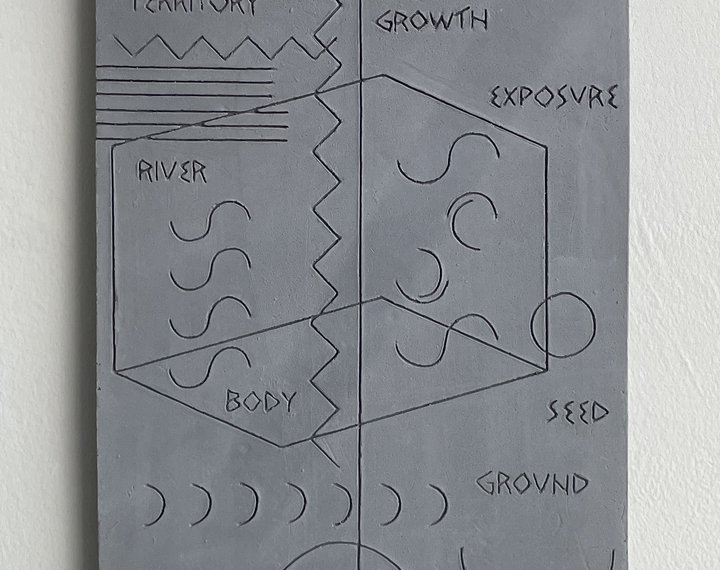 TERRITORY
GROWTH
EXPOSVRE
RIVER
BODY
SEED
GROVND